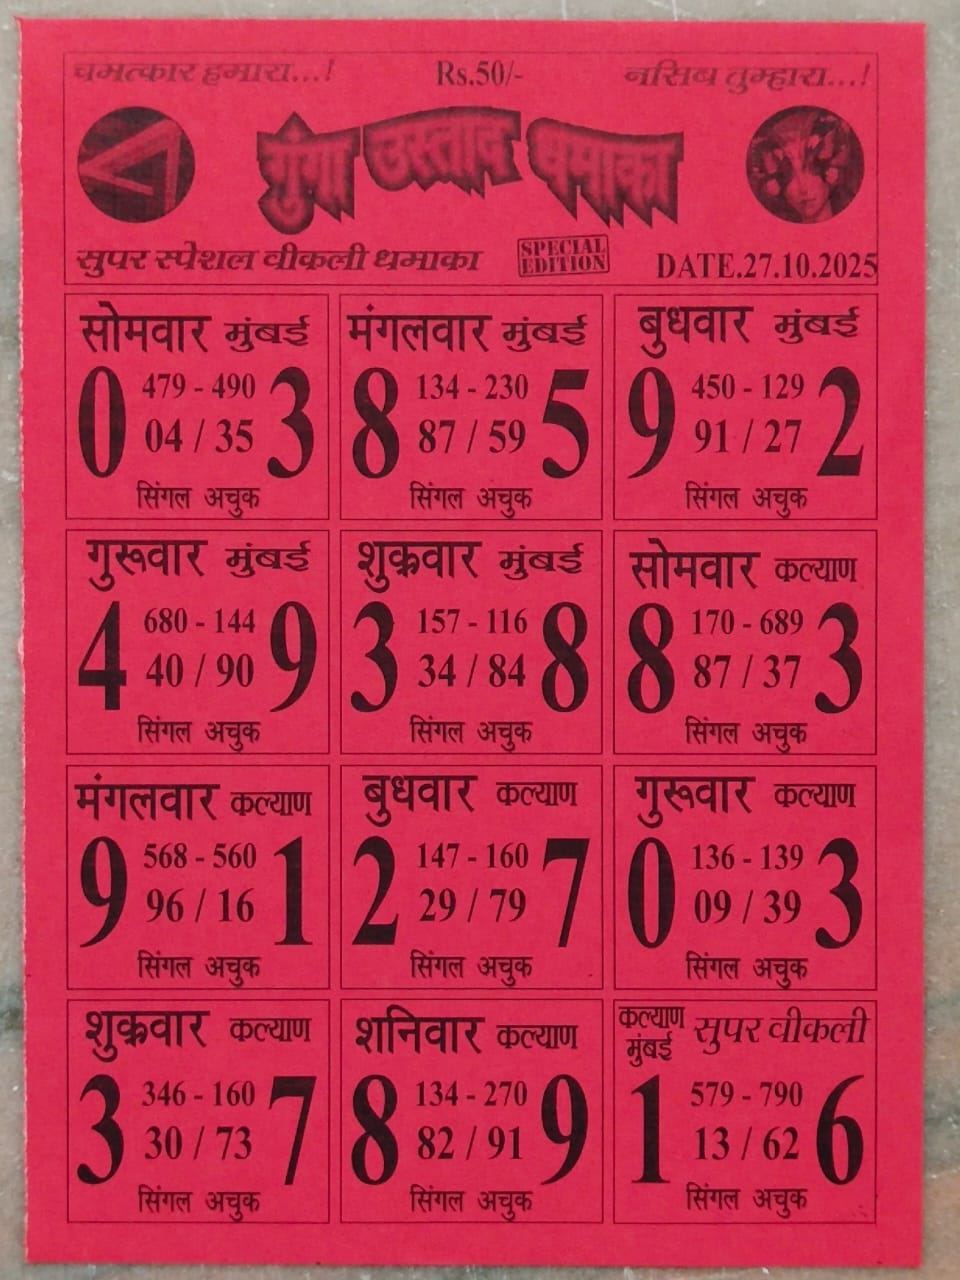 चमत्कार हमारा...! Rs.50/- नसिब तुम्हारा...!
गुंगा उस्ताद धमाका
सुपर स्पेशल वीकली धमाका SPECIAL EDITION DATE.27.10.2025
सोमवार मुंबई
479 - 490
0 3
04 / 35
सिंगल अचुक
मंगलवार मुंबई
134 - 230
8 5
87 / 59
सिंगल अचुक
बुधवार मुंबई
450 - 129
9 2
91 / 27
सिंगल अचुक
गुरूवार मुंबई
680 - 144
4 9
40 / 90
सिंगल अचुक
शुक्रवार मुंबई
157 - 116
3 8
34 / 84
सिंगल अचुक
सोमवार कल्याण
170 - 689
8 3
87 / 37
सिंगल अचुक
मंगलवार कल्याण
568 - 560
9 1
96 / 16
सिंगल अचुक
बुधवार कल्याण
147 - 160
2 7
29 / 79
सिंगल अचुक
गुरूवार कल्याण
136 - 139
0 3
09 / 39
सिंगल अचुक
शुक्रवार कल्याण
346 - 160
3 7
30 / 73
सिंगल अचुक
शनिवार कल्याण
134 - 270
8 9
82 / 91
सिंगल अचुक
कल्याण मुंबई सुपर वीकली
579 - 790
1 6
13 / 62
सिंगल अचुक